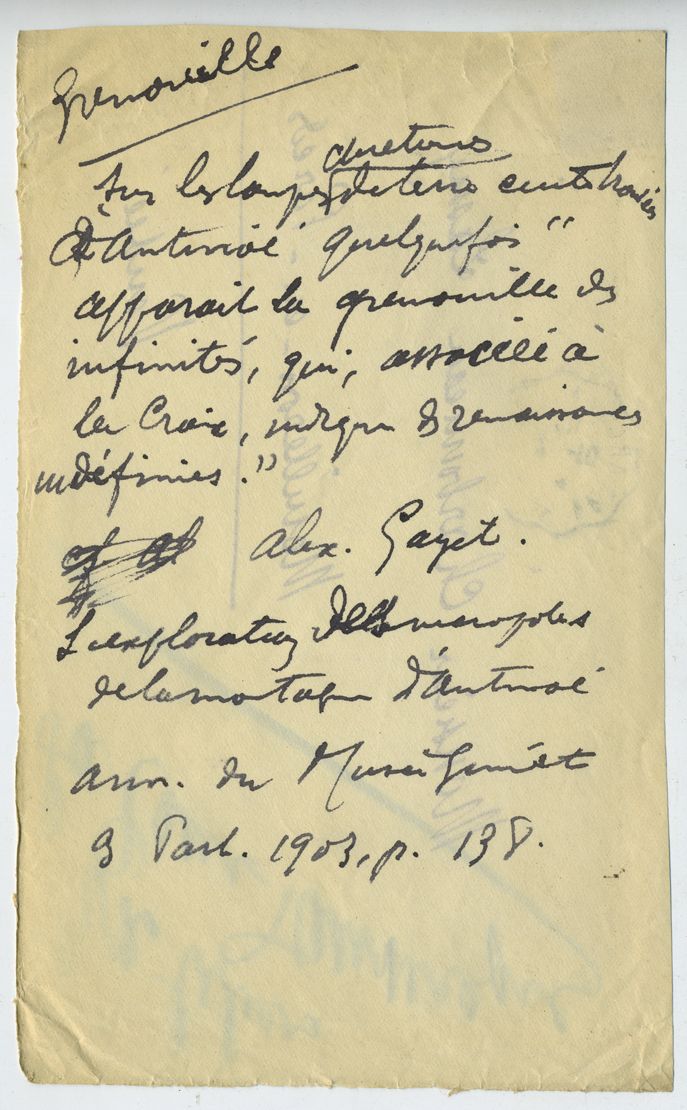 Grenouille
chretiennes
Sur les lampes de terre cuite trouvées
d'Antinoé quelquefois "
apparait la grenouille des
infinités, qui, associéé à
la Croix, marque les renaissances
indéfinies."
Alex. Gayet.
L'exploration des necropoles
de la montagne d'Antinoé
ann. du Musée Guimet
3 Part. 1903, p. 138.